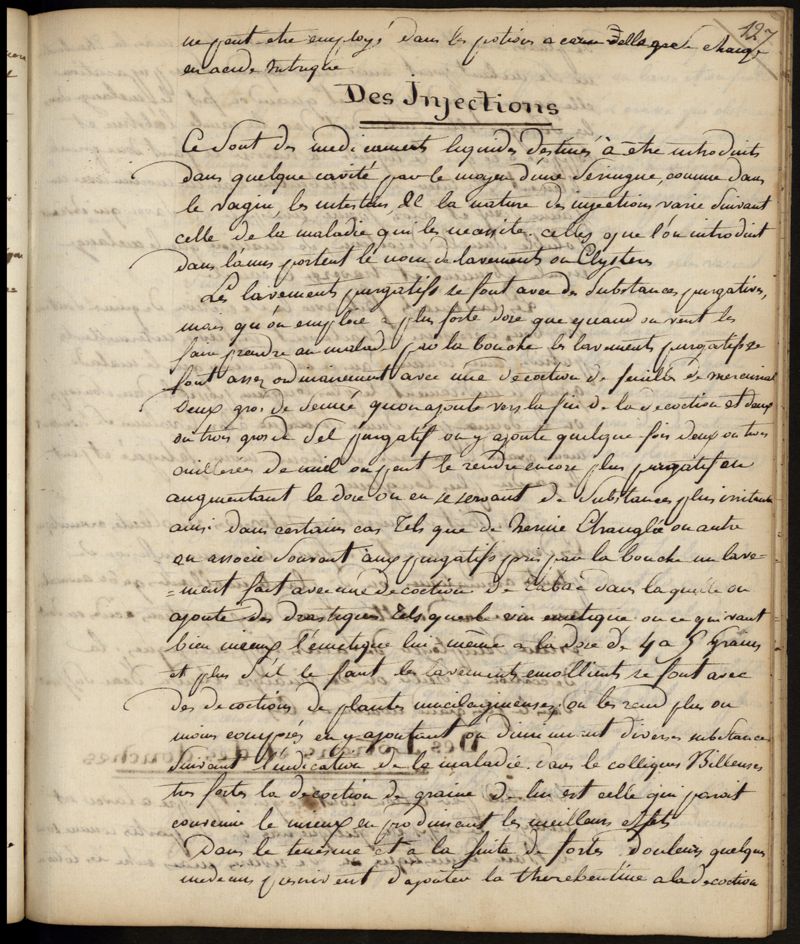 127
ne peut être employé dans les potions a cause de ce que se change
en acide nitrique
Des Injections
Ce sont des medicaments liquides destinés à être introduits
dans quelque cavité par le moyen d'une seringue, comme dans
le vagin, les intestins, &c la nature des injections varie suivant
celle de la maladie qui les necessite. celles que l'on introduit
dans l'anus portent le nom de lavements ou Clysteres
Les lavements purgatifs se font avec des substances purgatives,
mais qu'on emploie a plus forte dose que quand on veut les
faire prendre au malade par la bouche les lavements purgatifs se
font assez ordinairement avec une decoction de feuilles de mercurial
deux gros de senné qu'on ajoute vers la fin de la decoction et deux
ou trois gros de sel purgatif on y ajoute quelque fois deux ou trois
cuillerées de miel on peut le rendre encore plus purgatif en
augmentant la dose ou en se servant de substances plus irritante
ainsi dans certains cas tels que de hernie etranglée ou autre
on associe souvent aux purgatifs pris par la bouche un lave=
=ment fait avec une decoction de tabac dans laquelle on
ajoute des drastiques tels que le vin emetique ou ce qui vaut
bien mieux l'emetique lui même a la dose de 4 a 5 grains
et plus s'il le faut les lavements emollients se font avec
des decoctions de plantes mucilagineuses, on les rend plus ou
moins composés en y ajoutant ou diminuant diverses substances
suivant l'indication de la maladie. dans le colliques Billeuses
tres fortes la decoction de graine de lin est celle qui parait
convenir le mieux en produisant les meilleurs effets
Dans le tenesme et a la suite de fortes douleurs quelques
medecins prescrivent d'ajouter la therebentine a la decoction